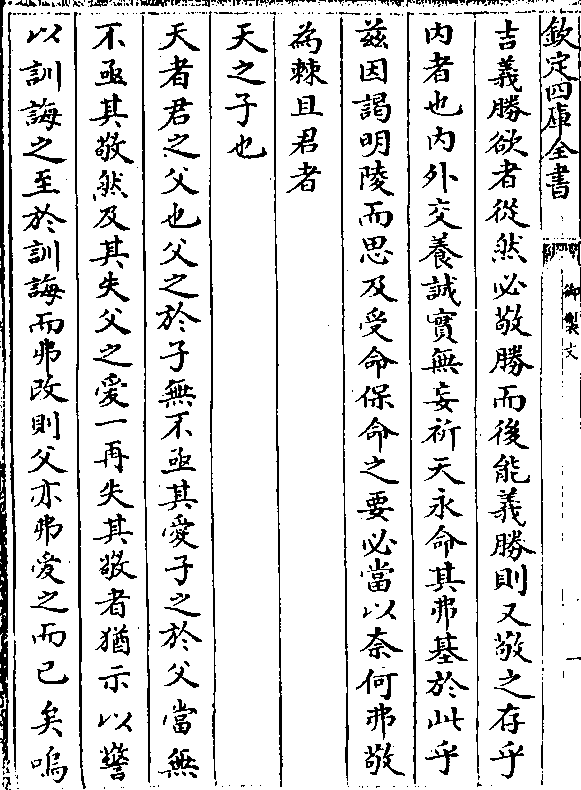 欽定四庫全書
御製文
吉義勝欲者從然必敬勝而後能義勝則又敬之存乎
内者也内外交養誠實無妄祈天永命其弗基於此乎
兹因謁明陵而思及受命保命之要必當以奈何弗敬
為棘且君者
天之子也
天者君之父也父之於子無不亟其愛子之於父當無
不亟其敬然及其失父之愛一再失其敬者猶示以警
以訓誨之至於訓誨而弗改則父亦弗愛之而已矣嗚